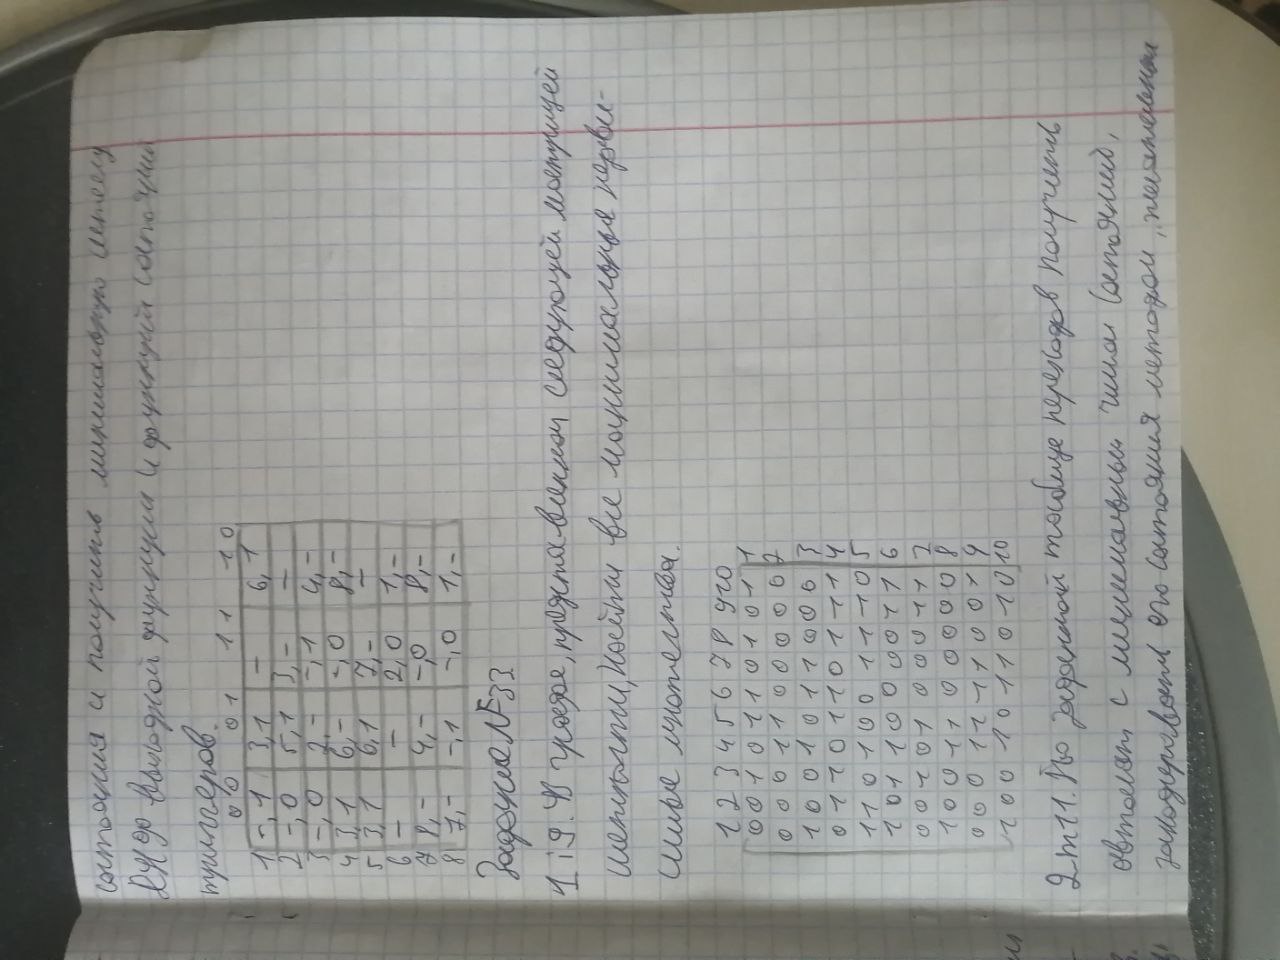 состояния и получить минимальную систему
ДНФ выходной функции и функций состояния
триггеров.
00 01 11 10
1 -,1 3,1 - 6,1
2 -,0 5,1 3,- -
3 -,0 2,- -,1 4,-
4 3,1 6,- -,0 8,-
5 3,1 6,1 7,- -
6 - - 2,0 1,-
7 8,- 4,- -,0 8,-
8 7,- -,1 -,0 1,-
Задание №33
1 i9. В графе, представленном следующей матрицей
смежности, найти все максимальные независимые множества.
1 2 3 4 5 6 7 8 9 10
0 0 1 0 1 1 0 1 0 1 1
0 0 0 1 1 0 0 0 0 0 2
1 0 0 1 0 1 1 0 0 0 3
0 1 1 0 1 1 0 1 1 1 4
1 1 0 1 0 0 1 1 1 0 5
1 0 1 1 0 0 0 0 1 1 6
0 0 1 0 1 0 0 0 1 1 7
1 0 0 1 1 0 0 0 0 0 8
0 0 0 1 1 1 1 0 0 1 9
1 0 0 1 0 1 1 0 1 0 10
2 m11. По заданной таблице переходов получить
автомат с минимальным числом состояний,
закодировать его состояния методом „желательных